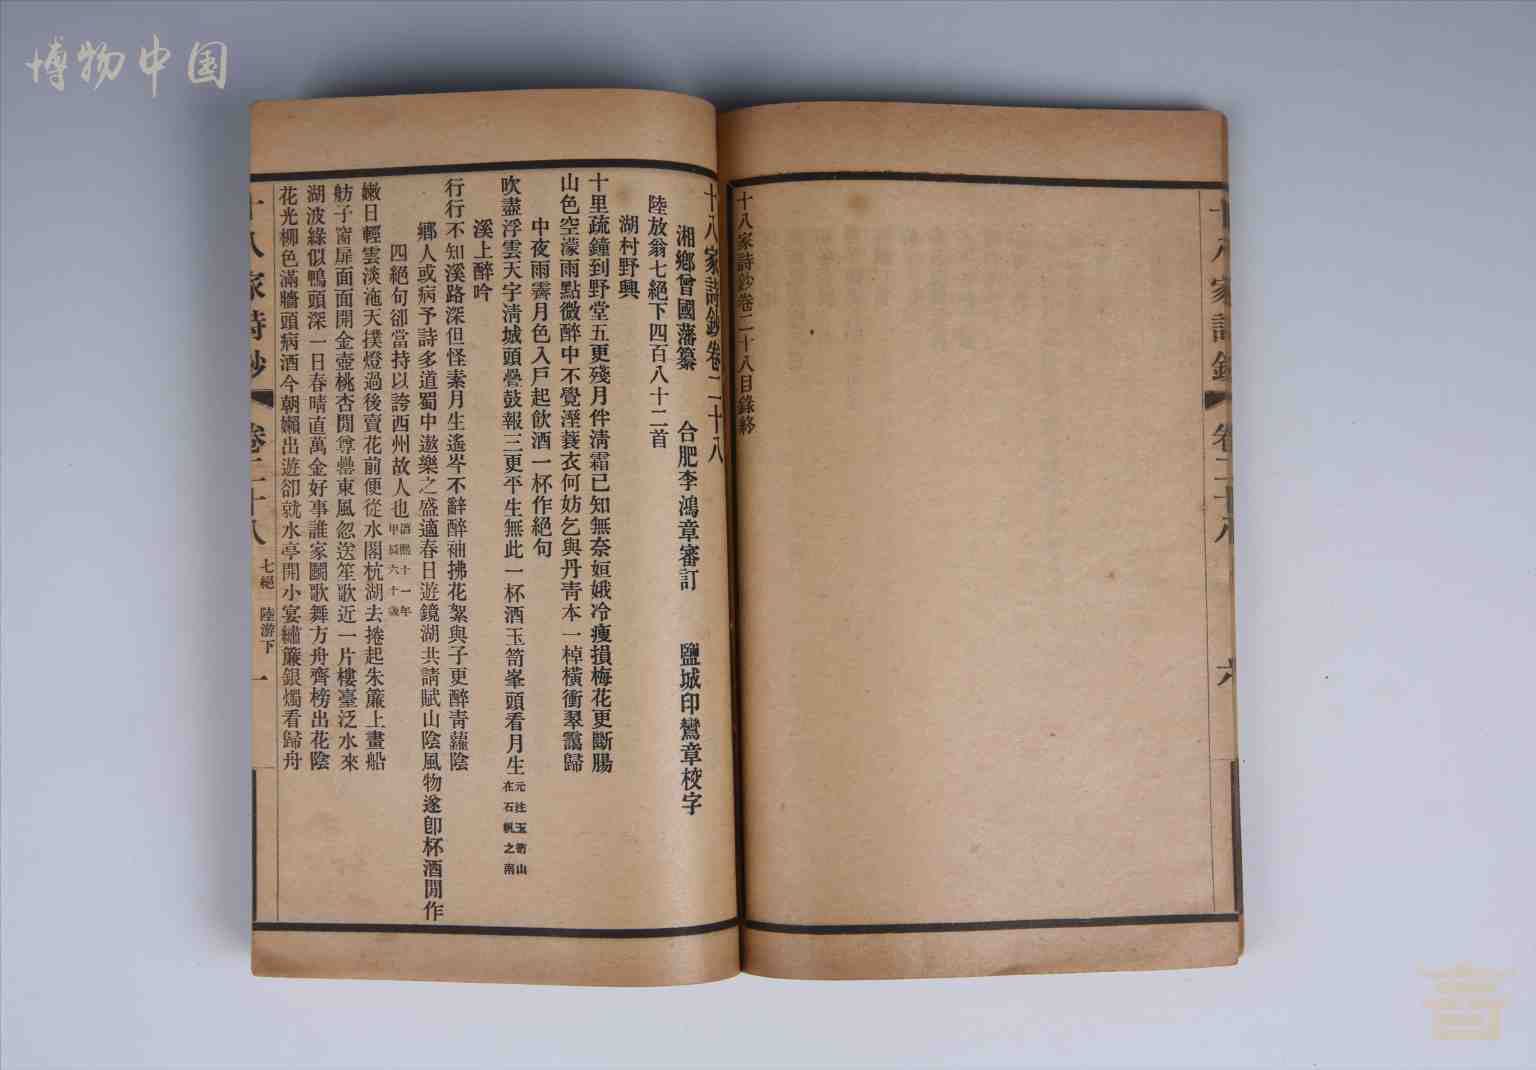 博物中国
十八家詩鈔卷二十八
六
十八家詩鈔卷二十八目錄終
十八家詩鈔卷二十八
湘鄉曾國藩纂 合肥李鴻章審訂 鹽城印鸞章校字
陸放翁七絕下四百八十二首
湖村野興
十里疏鐘到野堂五更殘月伴清霜已知無奈姮娥冷瘦損梅花更斷腸
山色空濛雨點微醉中不覺溼蓑衣何妨乞與丹青本一棹橫衝翠靄歸
中夜雨霽月色入戶起飲酒一杯作絕句
吹盡浮雲天宇清城頭疊鼓報三更平生無此一杯酒玉笥峯頭看月生
元注玉笥山
在石帆之南
溪上醉吟
行行不知溪路深但怪素月生遙岑不辭醉袖拂花絮與子更醉青蘿陰
鄉人或病予詩多道蜀中遨樂之盛適春日遊鏡湖共請賦山陰風物遂即杯酒閒作
四絕句卻當持以誇西州故人也
淳熙十一年
甲辰六十歲
嫩日輕雲淡沲天撲燈過後賣花前便從水閣杭湖去捲起朱簾上畫船
舫子窗扉面面開金壺桃杏閒尊罍東風忽送笙歌近一片樓臺泛水來
湖波綠似鴨頭深一日春晴直萬金好事誰家鬭歌舞方舟齊榜出花陰
花光柳色滿牆頭病酒今朝懶出遊卻就水亭開小宴繡簾銀燭看歸舟
十八家詩鈔 卷二十八 七絕 陸游下 一